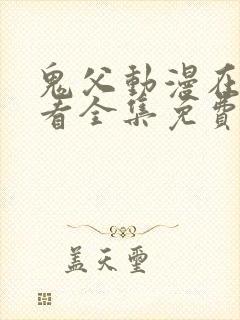 鬼父動漫在
看全集免費
蓋天璽